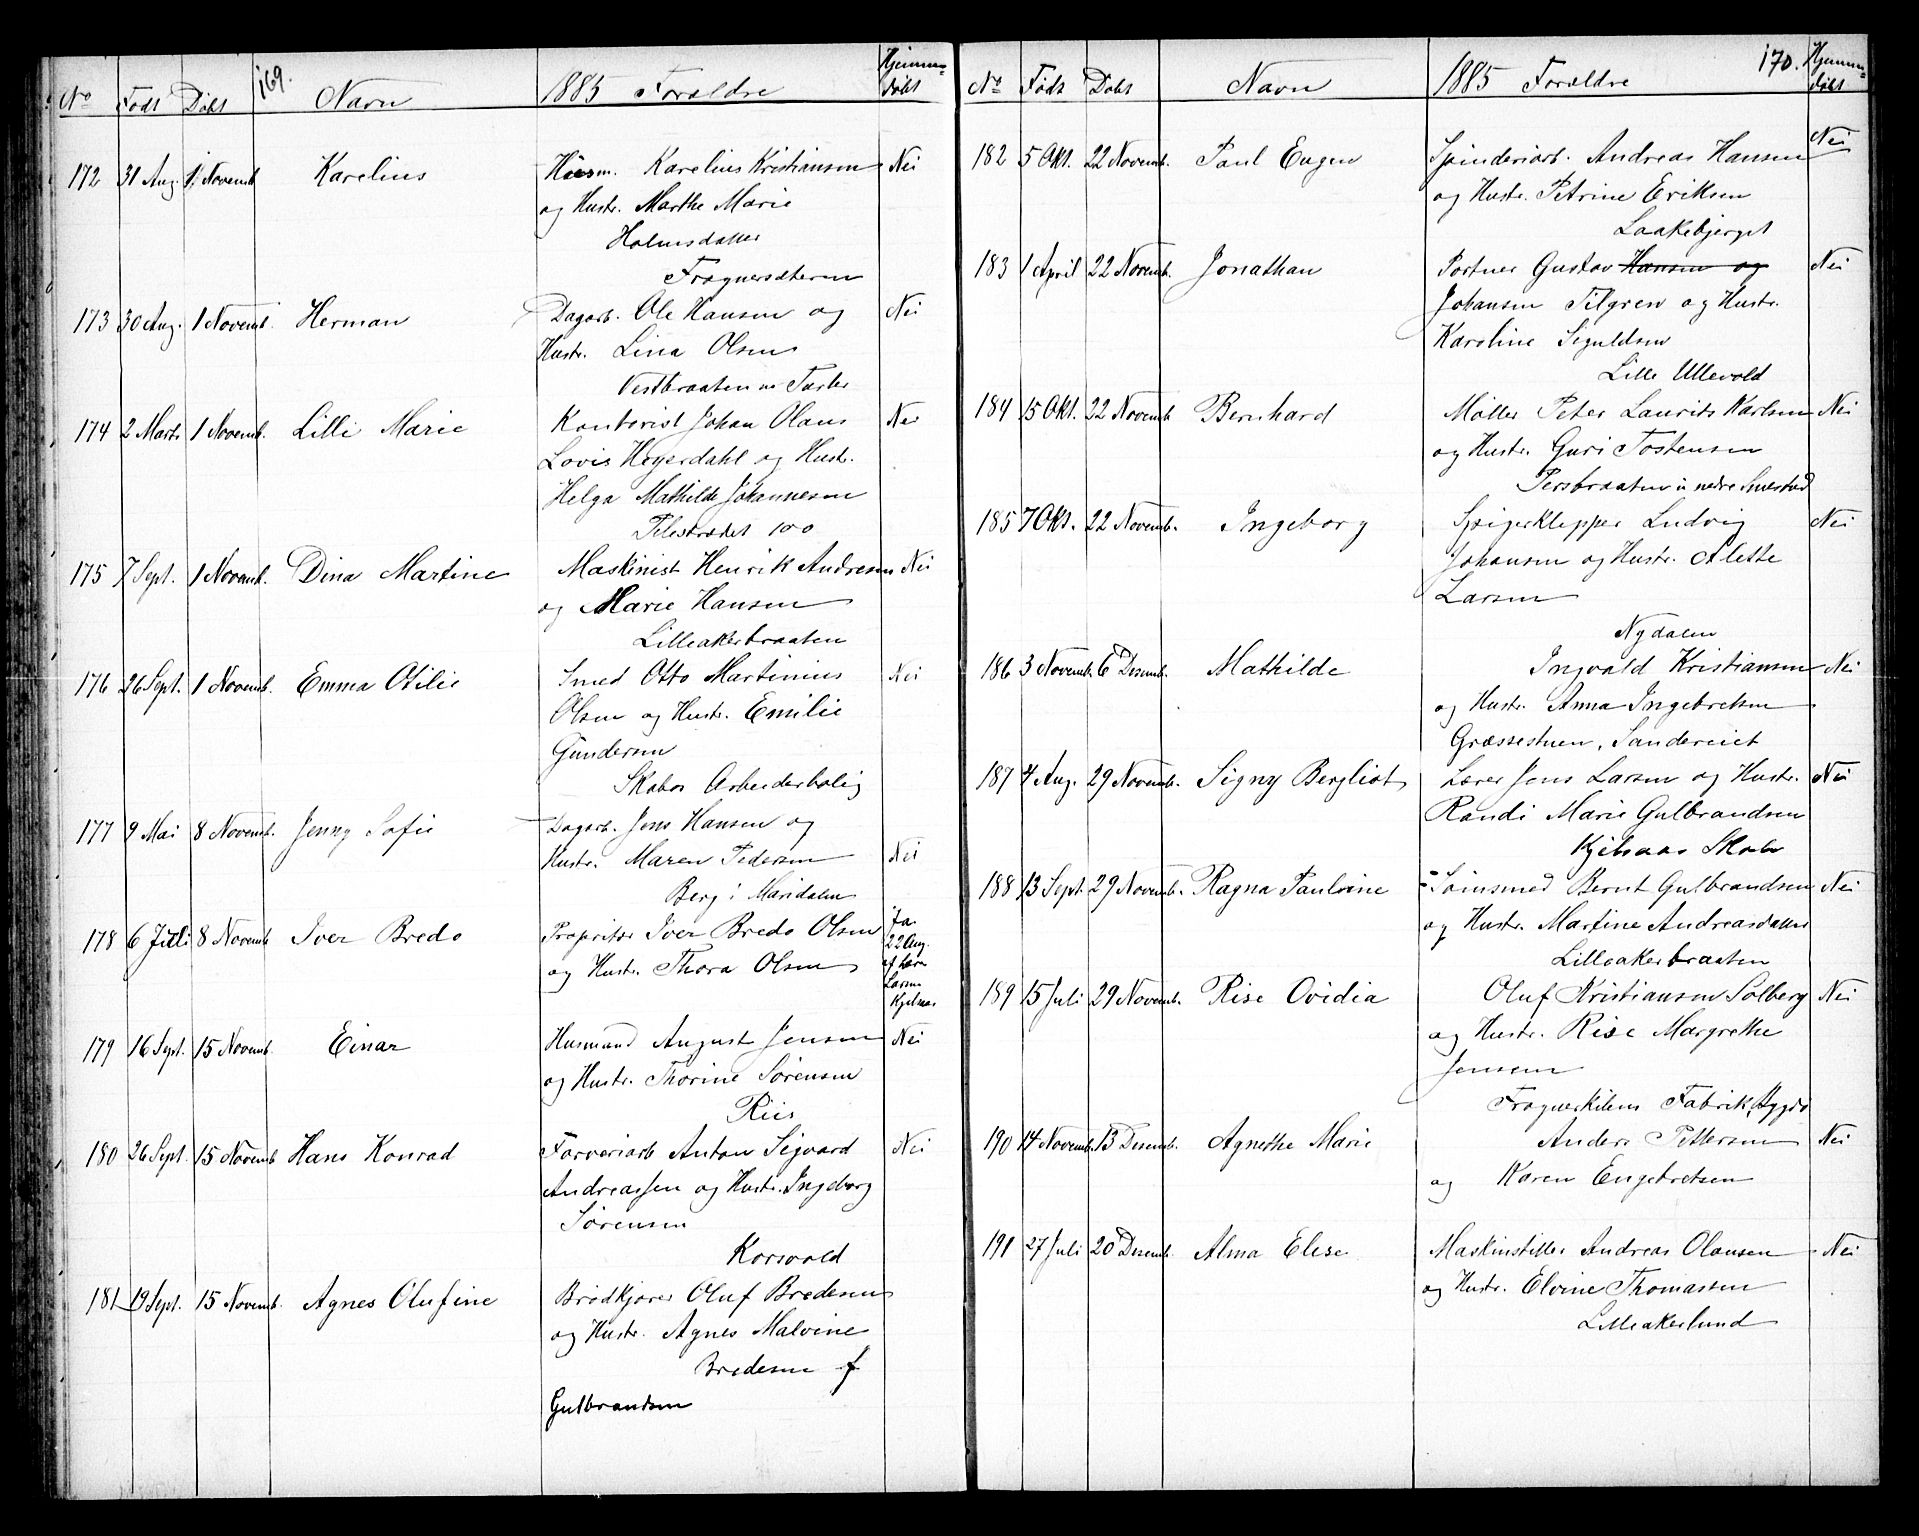 169.
No Født Døbt Navn 1885 Forældre Hjemme-
døbt
172 31 Aug. 1 Novemb Karelius Husm. Karelius Kristiansen Nei
og Hustr. Marthe Marie
Holmsdatter
Frognersæteren
173 30 Aug. 1 Novemb. Herman Dagarb. Ole Hansen og Nei
Hustr. Lina Olsen
Vestbraaten
174 2 Marts 1 Novemb. Lilli Marie Kontorist Johan Olaus Nei
Lovis Heyerdahl og Hustr.
Helga Mathilde Johannesen
Pilestrædet 100
175 7 Sept. 1 Novemb. Dina Martine Maskinist Henrik Andresen Nei
og Marie Hansen
Lilleakerbraaten
176 26 Sept. 1 Novemb. Emma Otilie Smed Otto Martinius Nei
Olsen og Hustr. Emilie
Gundersen
Skabos Arbeiderbolig
177 9 Mai 8 Novemb. Jenny Sofie Dagarb. Jens Hansen og
Hustr. Maren Pedersen Nei
Berg i Maridalen
178 6 Juli 8 Novemb Iver Bredo Propritær Iver Bredo Olsen Ja
22 Aug.
og Hustr. Thora Olsen af Lærer
Larsen
Kjelsaas
179 16 Sept. 15 Novemb. Einar Husmand August Jensen Nei
og Hustr. Thorine Sørensen
Riis
180 26 Sept. 15 Novemb Hans Konrad Farveriarb Anton Sigvard Nei
Andreassen og Hustr. Ingeborg
Sørensen
Korsvold
181 19 Sept. 15 Novemb. Agnes Olufine Brødkjører Oluf Bredesen
og Hustr. Agnes Malvine
Bredesen f
Gulbrandsen
170.
No Født Døbt Navn 1885 Forældre Hjemme-
døbt
182 5 Okt. 22 Novemb. Paul Eugen Spinderiarb. Andreas Hansen Nei
og Hustr. Petrine Eriksen
Laakebjerget
183 1 April 22 Novemb. Jonathan Portner Gustav Hansen og Nei
Johansen Tilgren og Hustr.
Karoline Siguldsen
Lille Ullevold
184 15 Okt. 22 Novemb Bernhard Møller Peter Laurits Karlsen Nei
og Hustr. Guri Tostensen
Persbraaten u nedre Smestad
185 7 Okt. 22 Novemb. Ingeborg Spigerklipper Ludvig Nei
Johansen og Hustr. Alette
Larsen
Nydalen
186 3 Novemb. 6 Desemb. Mathilde Ingvald Kristiansen Nei
og Hustr. Anna Ingebretsen
Græssestuen, Sandereiet
187 4 Aug. 29 Novemb. Signy Bergliot Lærer Jens Larsen og Hustr. Nei
Randi Marie Gulbrandsen
Kjelsaas Skole
188 13 Sept. 29 Novemb. Ragna Paulvine Bernt Gulbrandsen Nei
og Hustr. Martine Andreasdatter
Lilleakerbraaten
189 15 Juli 29 Novemb. Rise Ovidia Oluf Kristiansen Solberg Nei
og Hustr. Rise Margrethe
Jensen
Frognerkilens Fabrik, Bygdø
190 14 Novemb. 13 Desemb. Agnethe Marie Anders Pettersen Nei
og Karen Engebretsen
191 27 Juli 20 Desemb. Alma Elise Maskinstiller Andreas Olausen Nei
og Hustr. Elvine Thomassen
Lilleakerlund